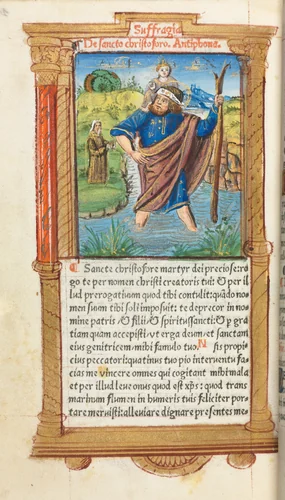 Suffragia
De sancto christoforo. Antiphona.
Sancte christofore martyr dei preciose: ro
go te per nomen christi creatoris tui: & per il
lud prerogatiuum quod tibi contulit: quãdo no
men suum tibi soli imposuit: te deprecor in no
mine patris & filii & spiritussancti: & p gra
tiam quam accepisti vt erga deum & sanctam
eius genitricem mihi famulo tuo. N sis propi
cius peccatori: quatinus tuo pio interuentu fa
cias me vincere omnes qui cogitant mihi mala
et per illud leue onus quod est xp̃s: quod trans
marinum flumen in humeris tuis feliciter por
tare meruisti: alleuiare digneris presentes me